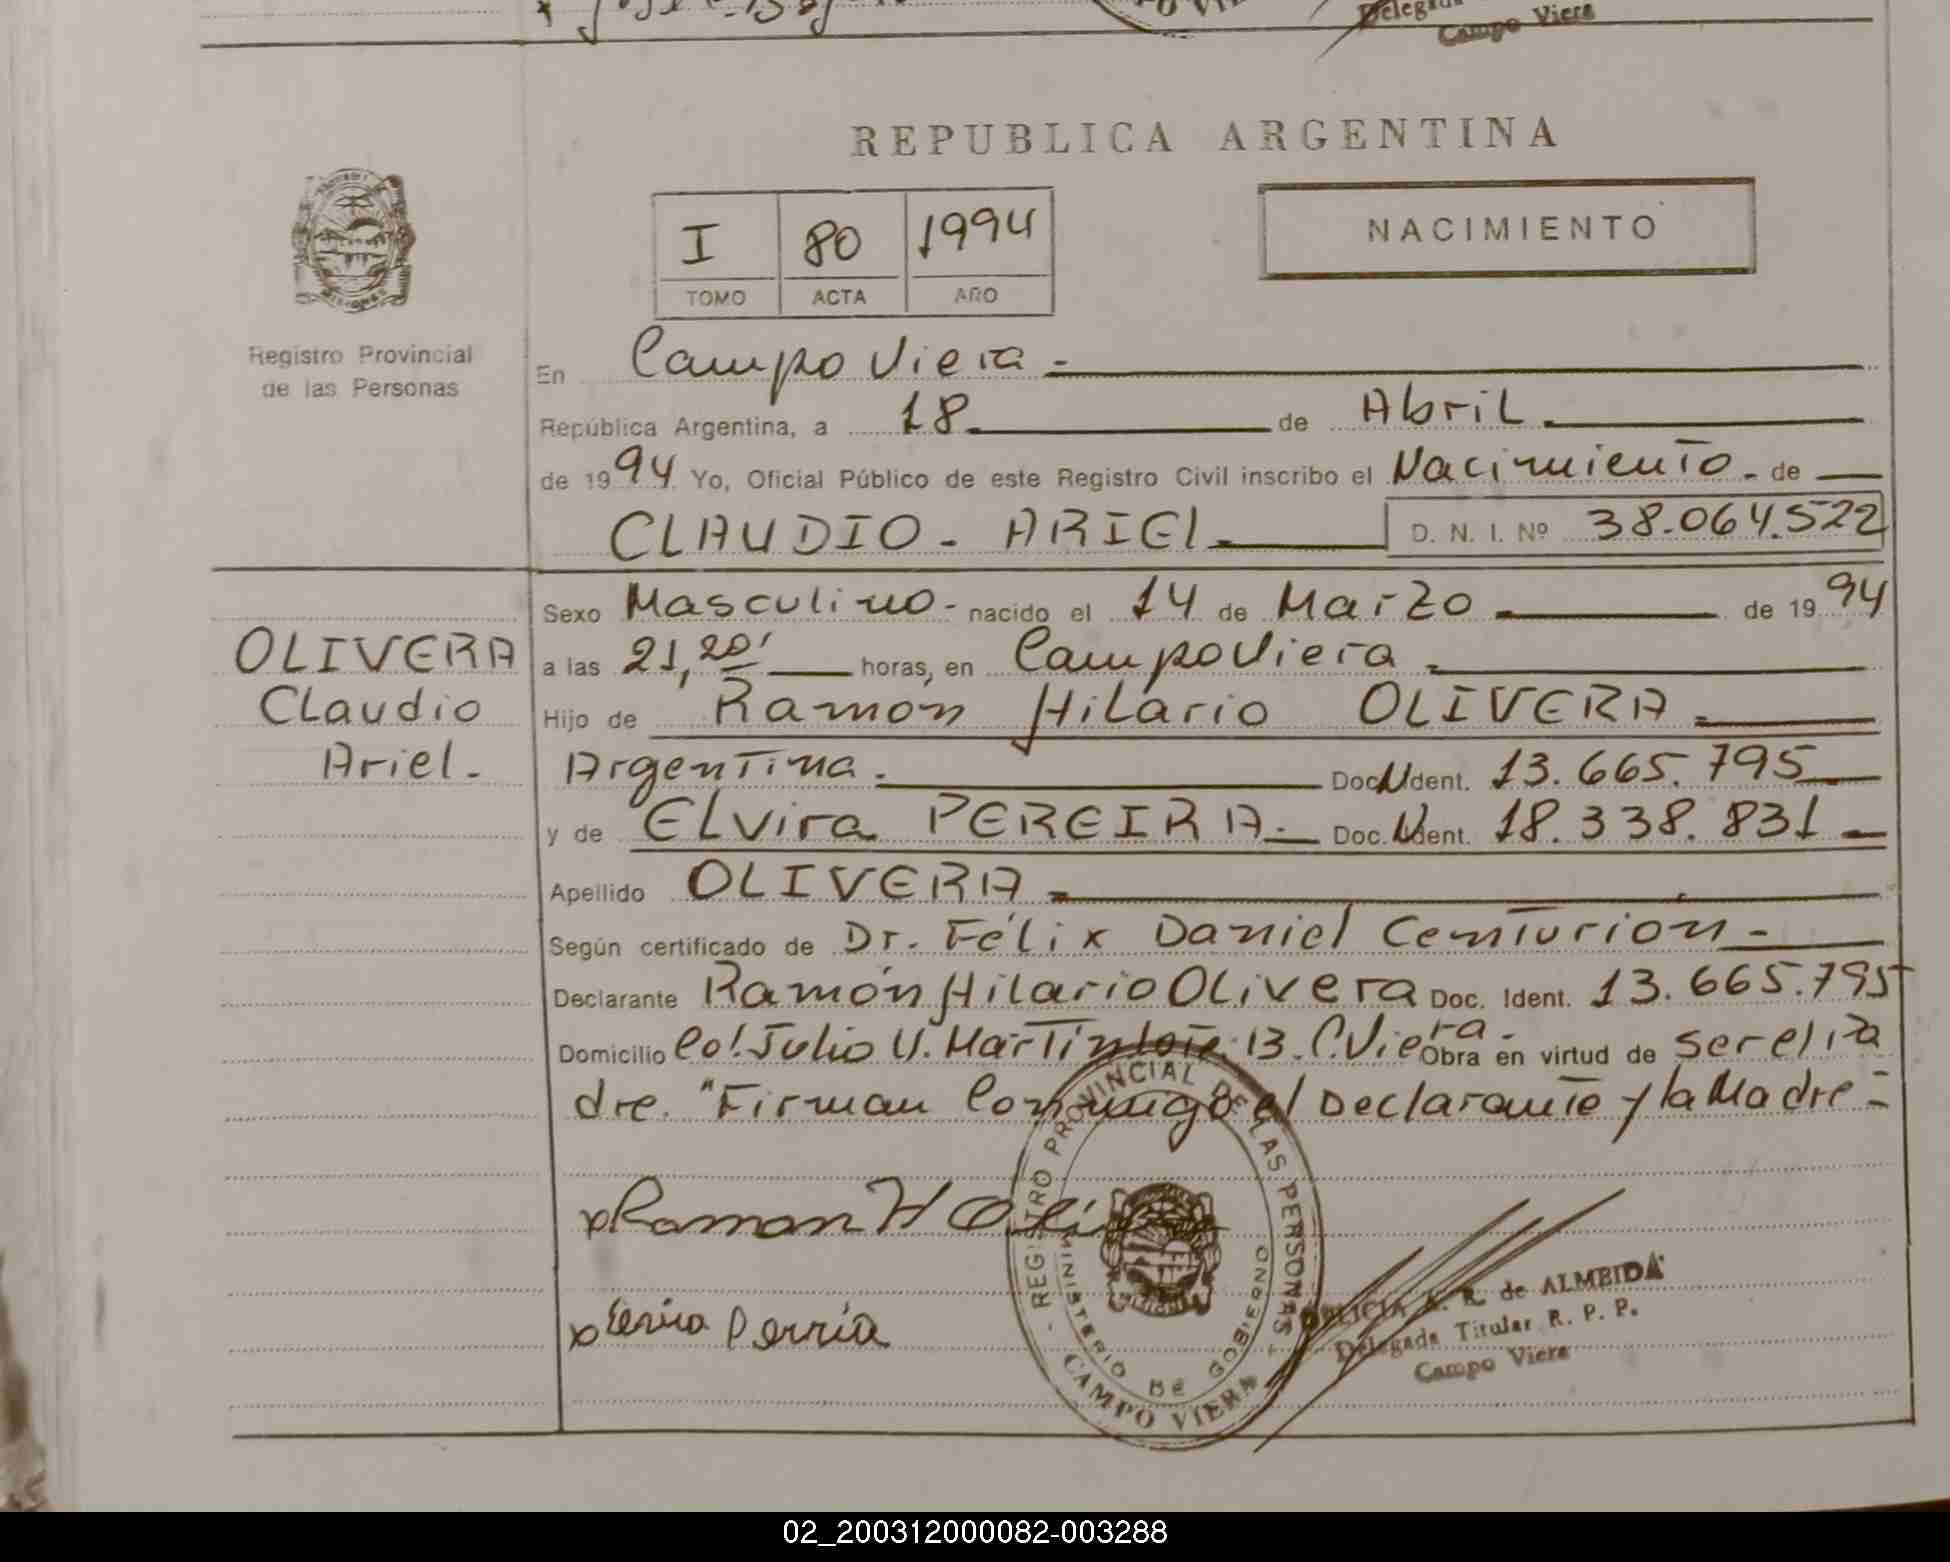 Delegada
Campo Viera
REPUBLICA ARGENTINA
I 80 1994
TOMO ACTA AÑO
NACIMIENTO
Registro Provincial
de las Personas
En Campo Viera -
República Argentina, a 18 de Abril
de 1994 Yo, Oficial Público de este Registro Civil inscribo el Nacimiento - de
CLAUDIO - ARIEL D. N. I. Nº 38.064.522
Sexo Masculino - nacido el 14 de Marzo de 1994
OLIVERA
Claudio
Ariel -
a las 21,20' horas, en Campo Viera
Hijo de Ramón Hilario OLIVERA
Argentina. Doc. N Ident. 13.665.795
y de Elvira PEREIRA Doc. N Ident. 18.338.831
Apellido OLIVERA
Según certificado de Dr. Félix Daniel Centurion -
Declarante Ramón Hilario Olivera Doc. Ident. 13.665.795
Domicilio Col. Julio U. Martin lote 13. C. Viera - Obra en virtud de ser el Pa
dre. "Firman Conmigo el Declarante y la Madre -
Ramon H
REGISTRO PROVINCIAL DE LAS PERSONAS
MINISTERIO DE GOBIERNO
CAMPO VIERA
A. R. de ALMEIDA
Delegada Titular R. P. P.
Campo Viera
02_200312000082-003288